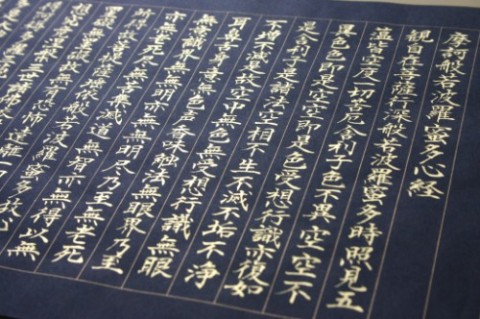 摩訶般若波羅蜜多心経
観自在菩薩行深般若波羅蜜多時照見五
蘊皆空度一切苦厄舎利子色不異空空不
異色色即是空空即是色受想行識亦復如
是舎利子是諸法空相不生不滅不垢不浄
不増不減是故空中無色無受想行識無眼
耳鼻舌身意無色声香味触法無眼界乃至
無意識界無無明亦無無明尽乃至無老死
亦無老死尽無苦集滅道無智亦無得以無
所得故菩提薩埵依般若波羅蜜多故心
罣礙無罣礙故無有恐怖遠離一切
想究竟涅槃三世諸